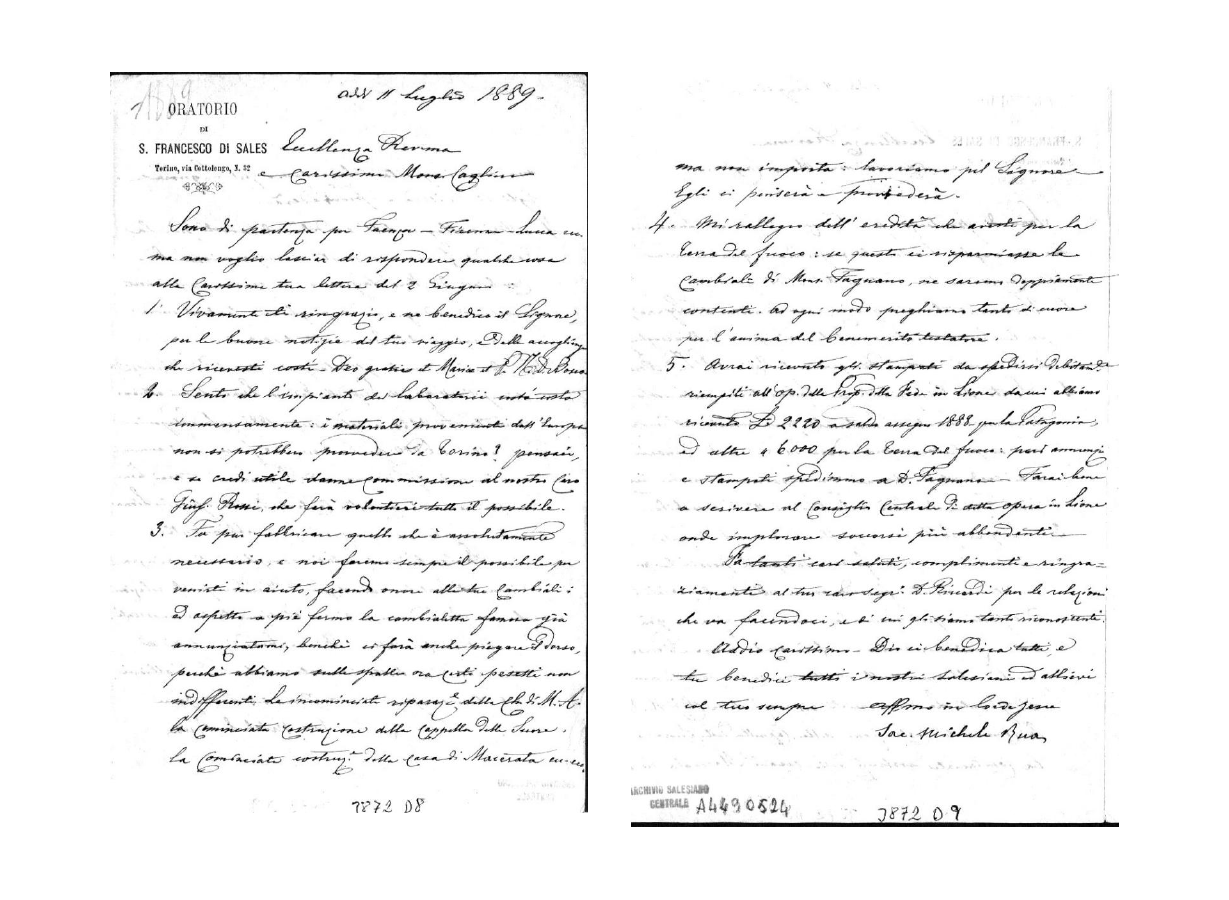 1889
addì 11 Luglio 1889.
ORATORIO
DI
S. FRANCESCO DI SALES
Torino, via Cottolengo, N. 32
Eccellenza Rev.ma
e Carissimo Mons. Cagliero
Sono di partenza per Faenza - Firenze - Lucca ecc.
ma non voglio lasciar di rispondere qualche cosa
alla Carissima tua lettera del 2 Giugno:
1. Vivamente ti ringrazio, e ne benedico il Signore,
per le buone notizie del tuo viaggio, e delle accoglienze
che ricevesti costì. Deo gratias et Mariae et P. N. D. Bosco
2. Sento che l'impianto dei laboratorii costà costa
immensamente: i materiali provenienti dall'Europa
non si potrebbero provvedere da Torino? pensaci,
e se credi utile danne commissione al nostro Caro
Gius. Rossi, che farà volontieri tutto il possibile.
3. Fa pur fabbricare quello che è assolutamente
necessario, e noi faremo sempre il possibile per
venirti in aiuto, facendo onore alle tue Cambiali:
ed aspetto a piè fermo la cambialetta famosa già
annunziatami, benchè ci farà anche piegare il dorso,
perchè abbiamo sulle spalle ora certi pesetti non
indifferenti. Le incominciate riparaz.e della Ch. di M. A.
la cominciata costruzione della Cappella delle Suore,
la cominciata costruz.e della casa di Macerata ecc. ecc.
3872 D8
ma non importa: lavoriamo pel Signore
Egli ci penserà e provvederà.
4. Mi rallegro dell'eredità che avesti per la
Terra del fuoco: se questa ci risparmiasse le
Cambiali di Mons. Fagnano, ne saremo doppiamente
contenti. Ad ogni modo preghiamo tanto di cuore
per l'anima del benemerito testatore.
5. Avrai ricevuto gli stampati da spedirsi debitamente
riempiti all'Op. della Prop. della Fede in Lione, da cui abbiamo
ricevuto L 2220 a saldo assegno 1888 per la Patagonia,
ed altre 6000 per la Terra del fuoco: però annunzi
e stampati spedimmo a D. Fagnano - Farai bene
a scrivere al Consiglio Centrale di detta opera in Lione
onde implorare soccorsi più abbondanti.
Fa tanti cari saluti, complimenti e ringra=
ziamenti al tuo caro segr. D. Riccardi per le relazioni
che va facendoci, e di cui gli siamo tanto riconoscenti.
Addio Carissimo - Dio ci benedica tutti, e
tu benedici tutti i nostri salesiani ed allievi
col tuo sempre Aff.mo in Corde Jesu
Sac. Michele Rua
ARCHIVIO SALESIANO
CENTRALE A4490524
3872 D9